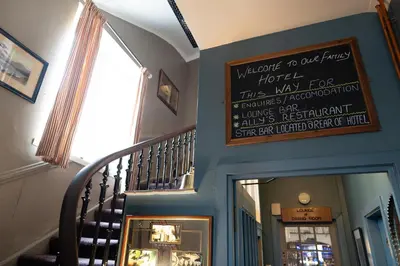 Welcome to Our Family
Hotel
This Way For
Enquiries/Accomodation
Lounge Bar
Ally's Restaurant
Star Bar Located @ Rear of Hotel
Lounge